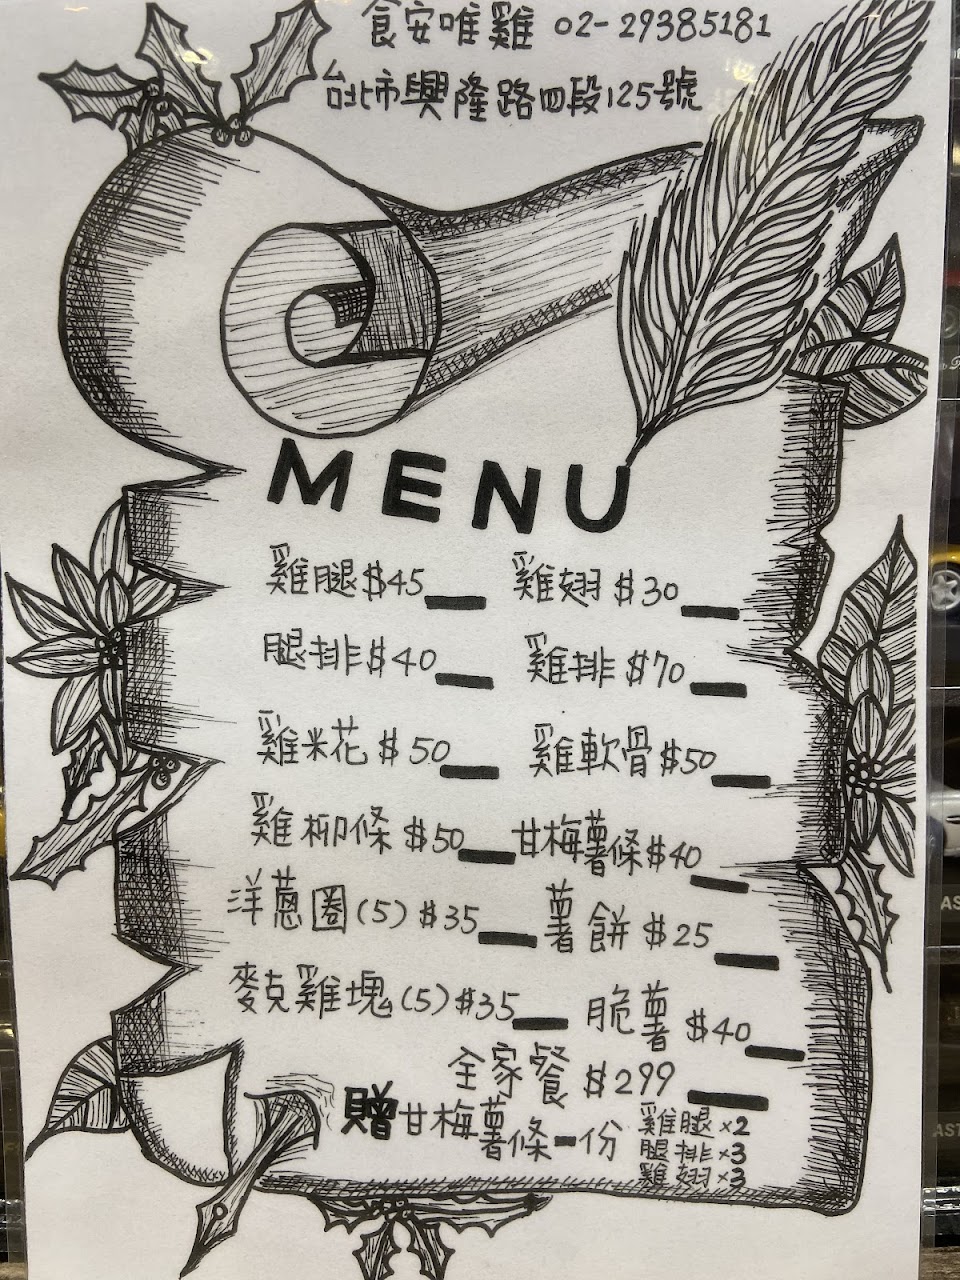 食安唯雞 02-29385181
台北市興隆路四段125號
MENU
雞腿$45 雞翅$30
腿排$40 雞排$70
雞米花$50 雞軟骨$50
雞柳條$50 甘梅薯條$40
洋蔥圈(5)$35 薯餅$25
麥克雞塊(5)$35 脆薯$40
全家餐$299
贈甘梅薯條一份
雞腿x2
腿排x3
雞翅x3